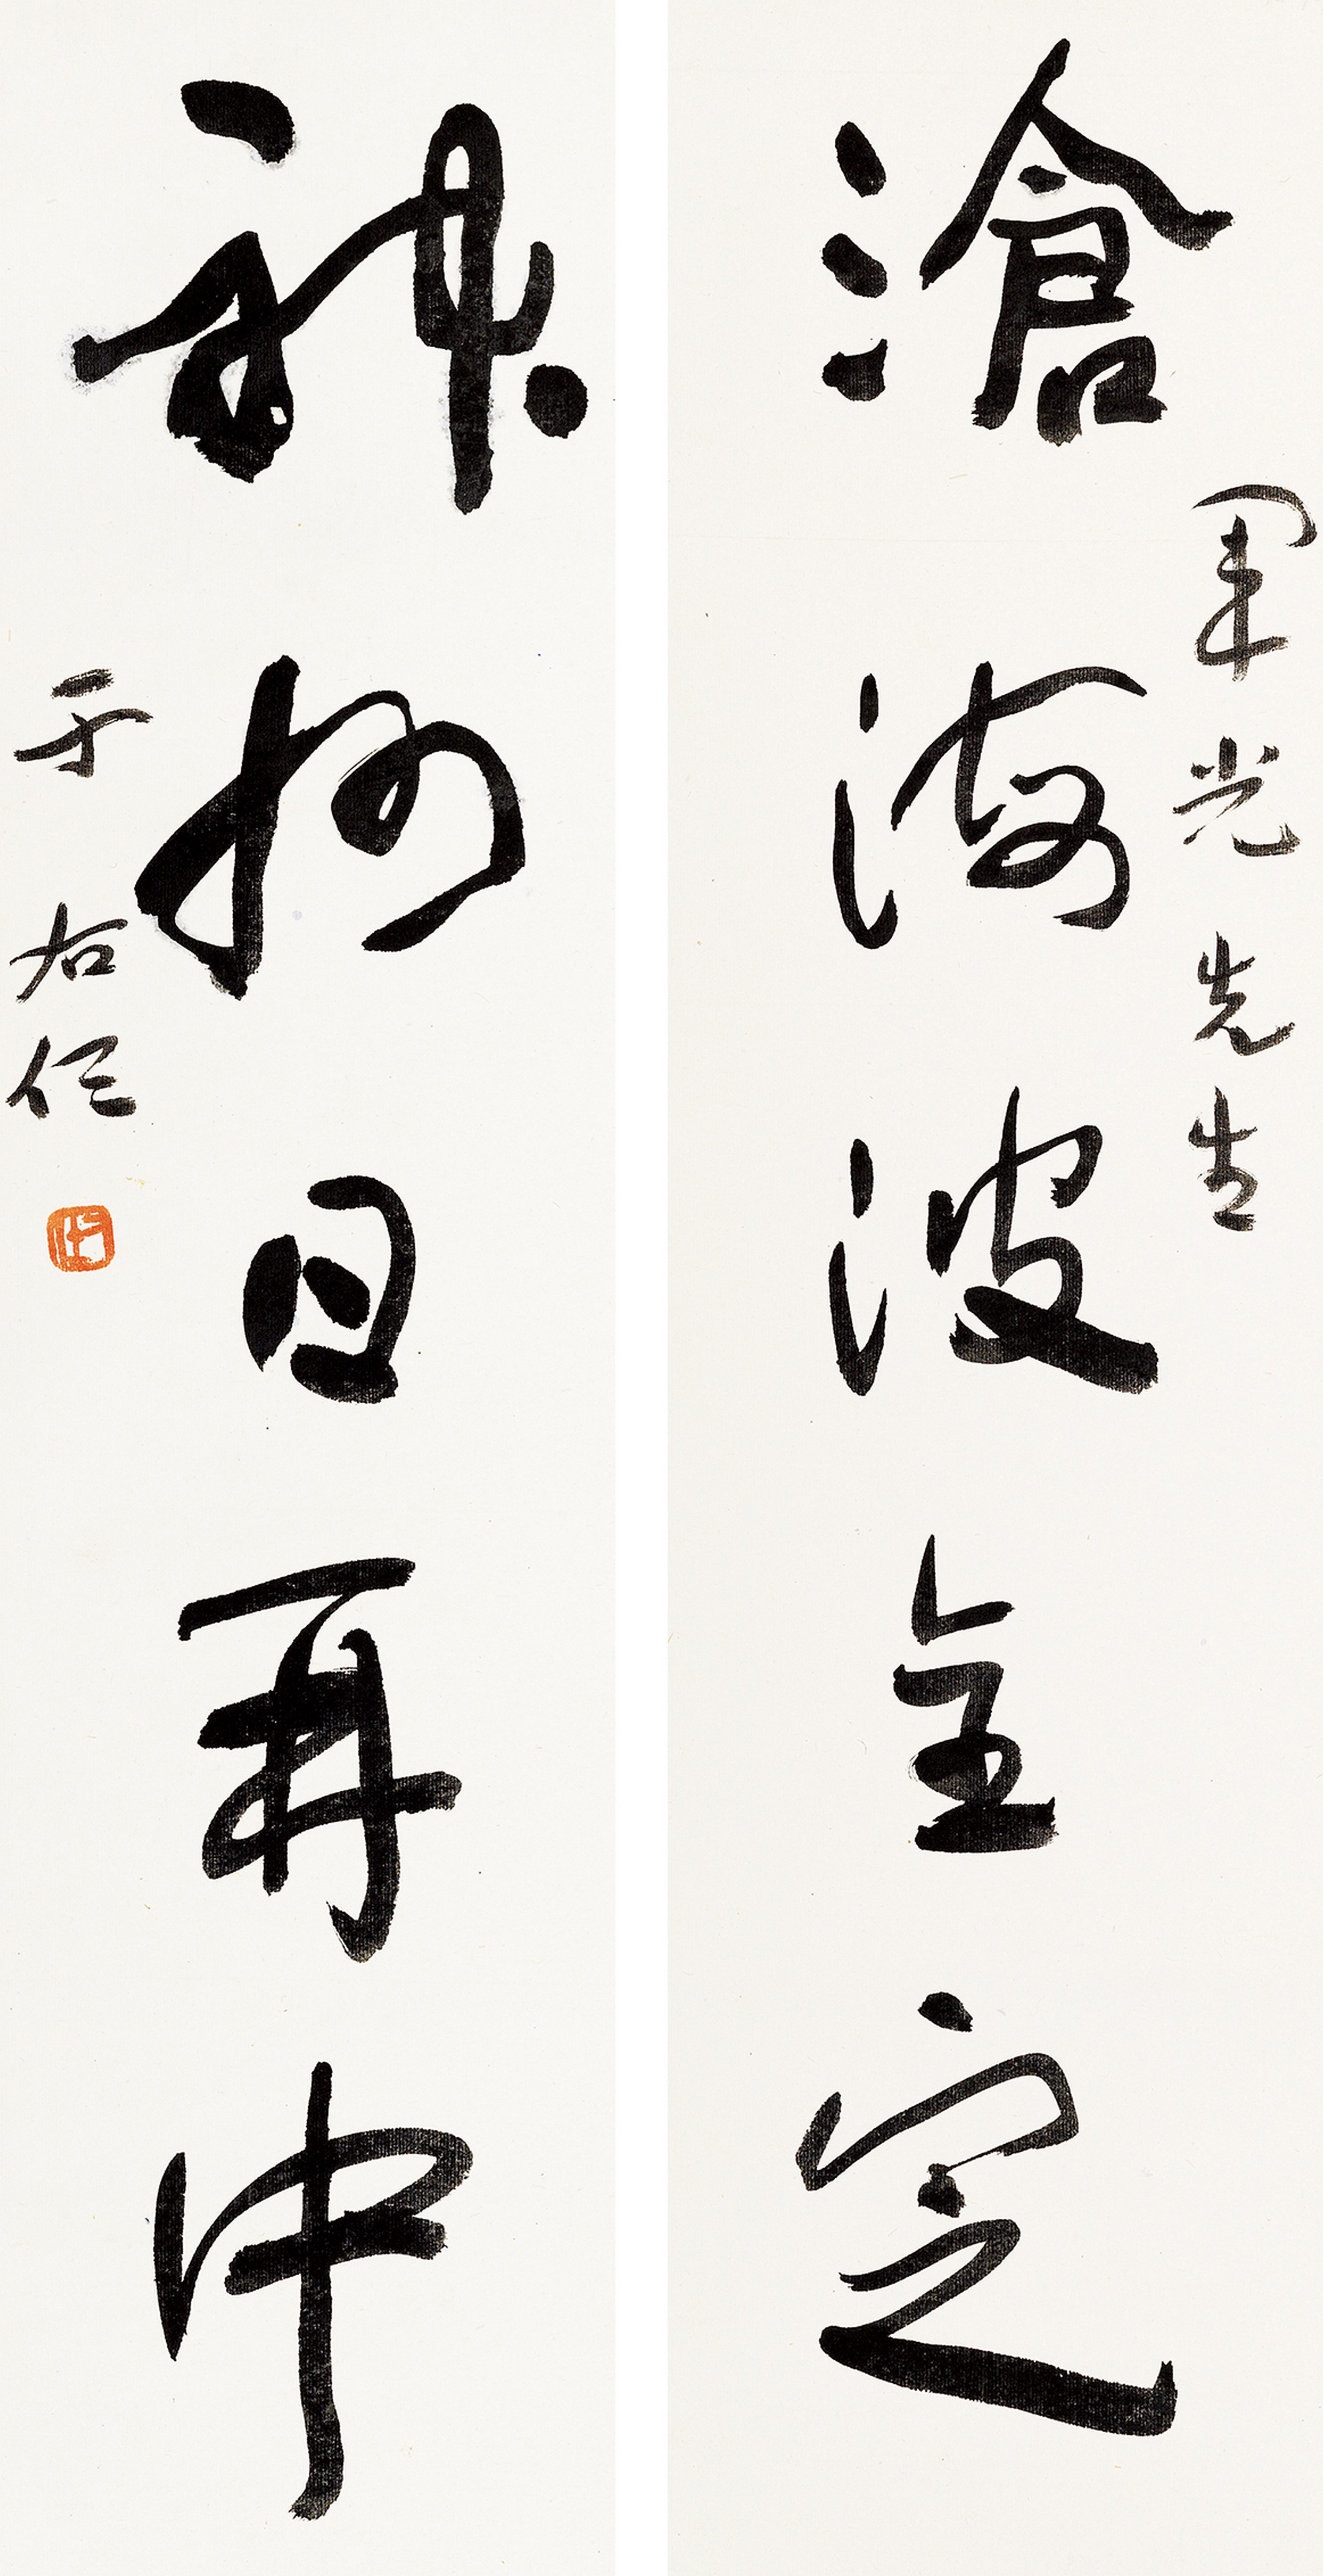 滄海波全定
軍光先生
神州日再中
于右任